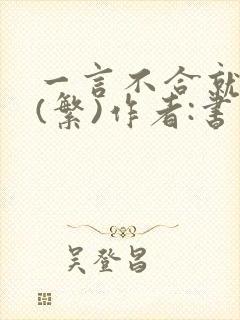 一言不合就
(繁)作者:書
吴登昌